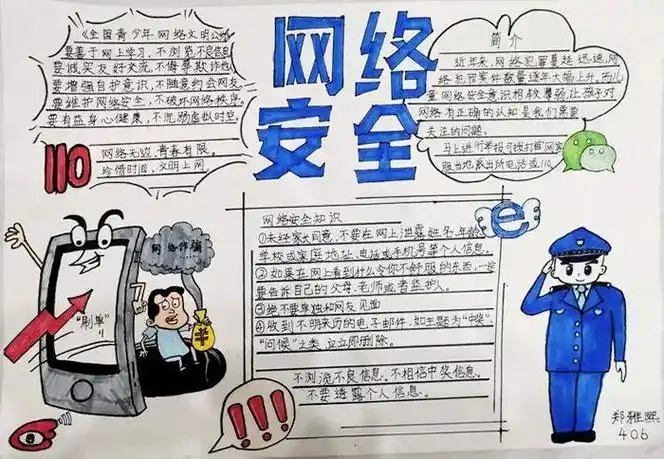 网络
安全
《全国青少年网络文明公约》
要善于网上学习,不浏览不良信息
要诚实友好交流,不侮辱欺诈他人
要增强自护意识,不随意约会网友
要维护网络安全,不破坏网络秩序
要有益身心健康,不沉溺虚拟时空.
网络无边,青春有限.
珍惜时间,文明上网
110
简介
近年来,网络犯罪蔓延迅速,网
络犯罪案件数量逐年大幅上升。而儿
童网络安全意识相较薄弱,让孩子对
网络有正确的认知是我们需要
关注的问题.
马上进行举报可拨打
派出所电话或110
网络诈骗
"刷单"
e
网络安全知识
①未经家长同意,不要在网上泄露姓名、年龄、
学校或家庭地址、电话或手机号等个人信息。
②如果在网上看到什么令你不舒服的东西,一定
要告诉自己的父母、老师或者监护人。
③绝不要单独和网友见面
④收到不明来历的电子邮件,如主题为"中奖"
"问候"之类,应立即删除。
不浏览不良信息。不相信中奖信息。
不要透露个人信息。
!!!
郑雅熙
406